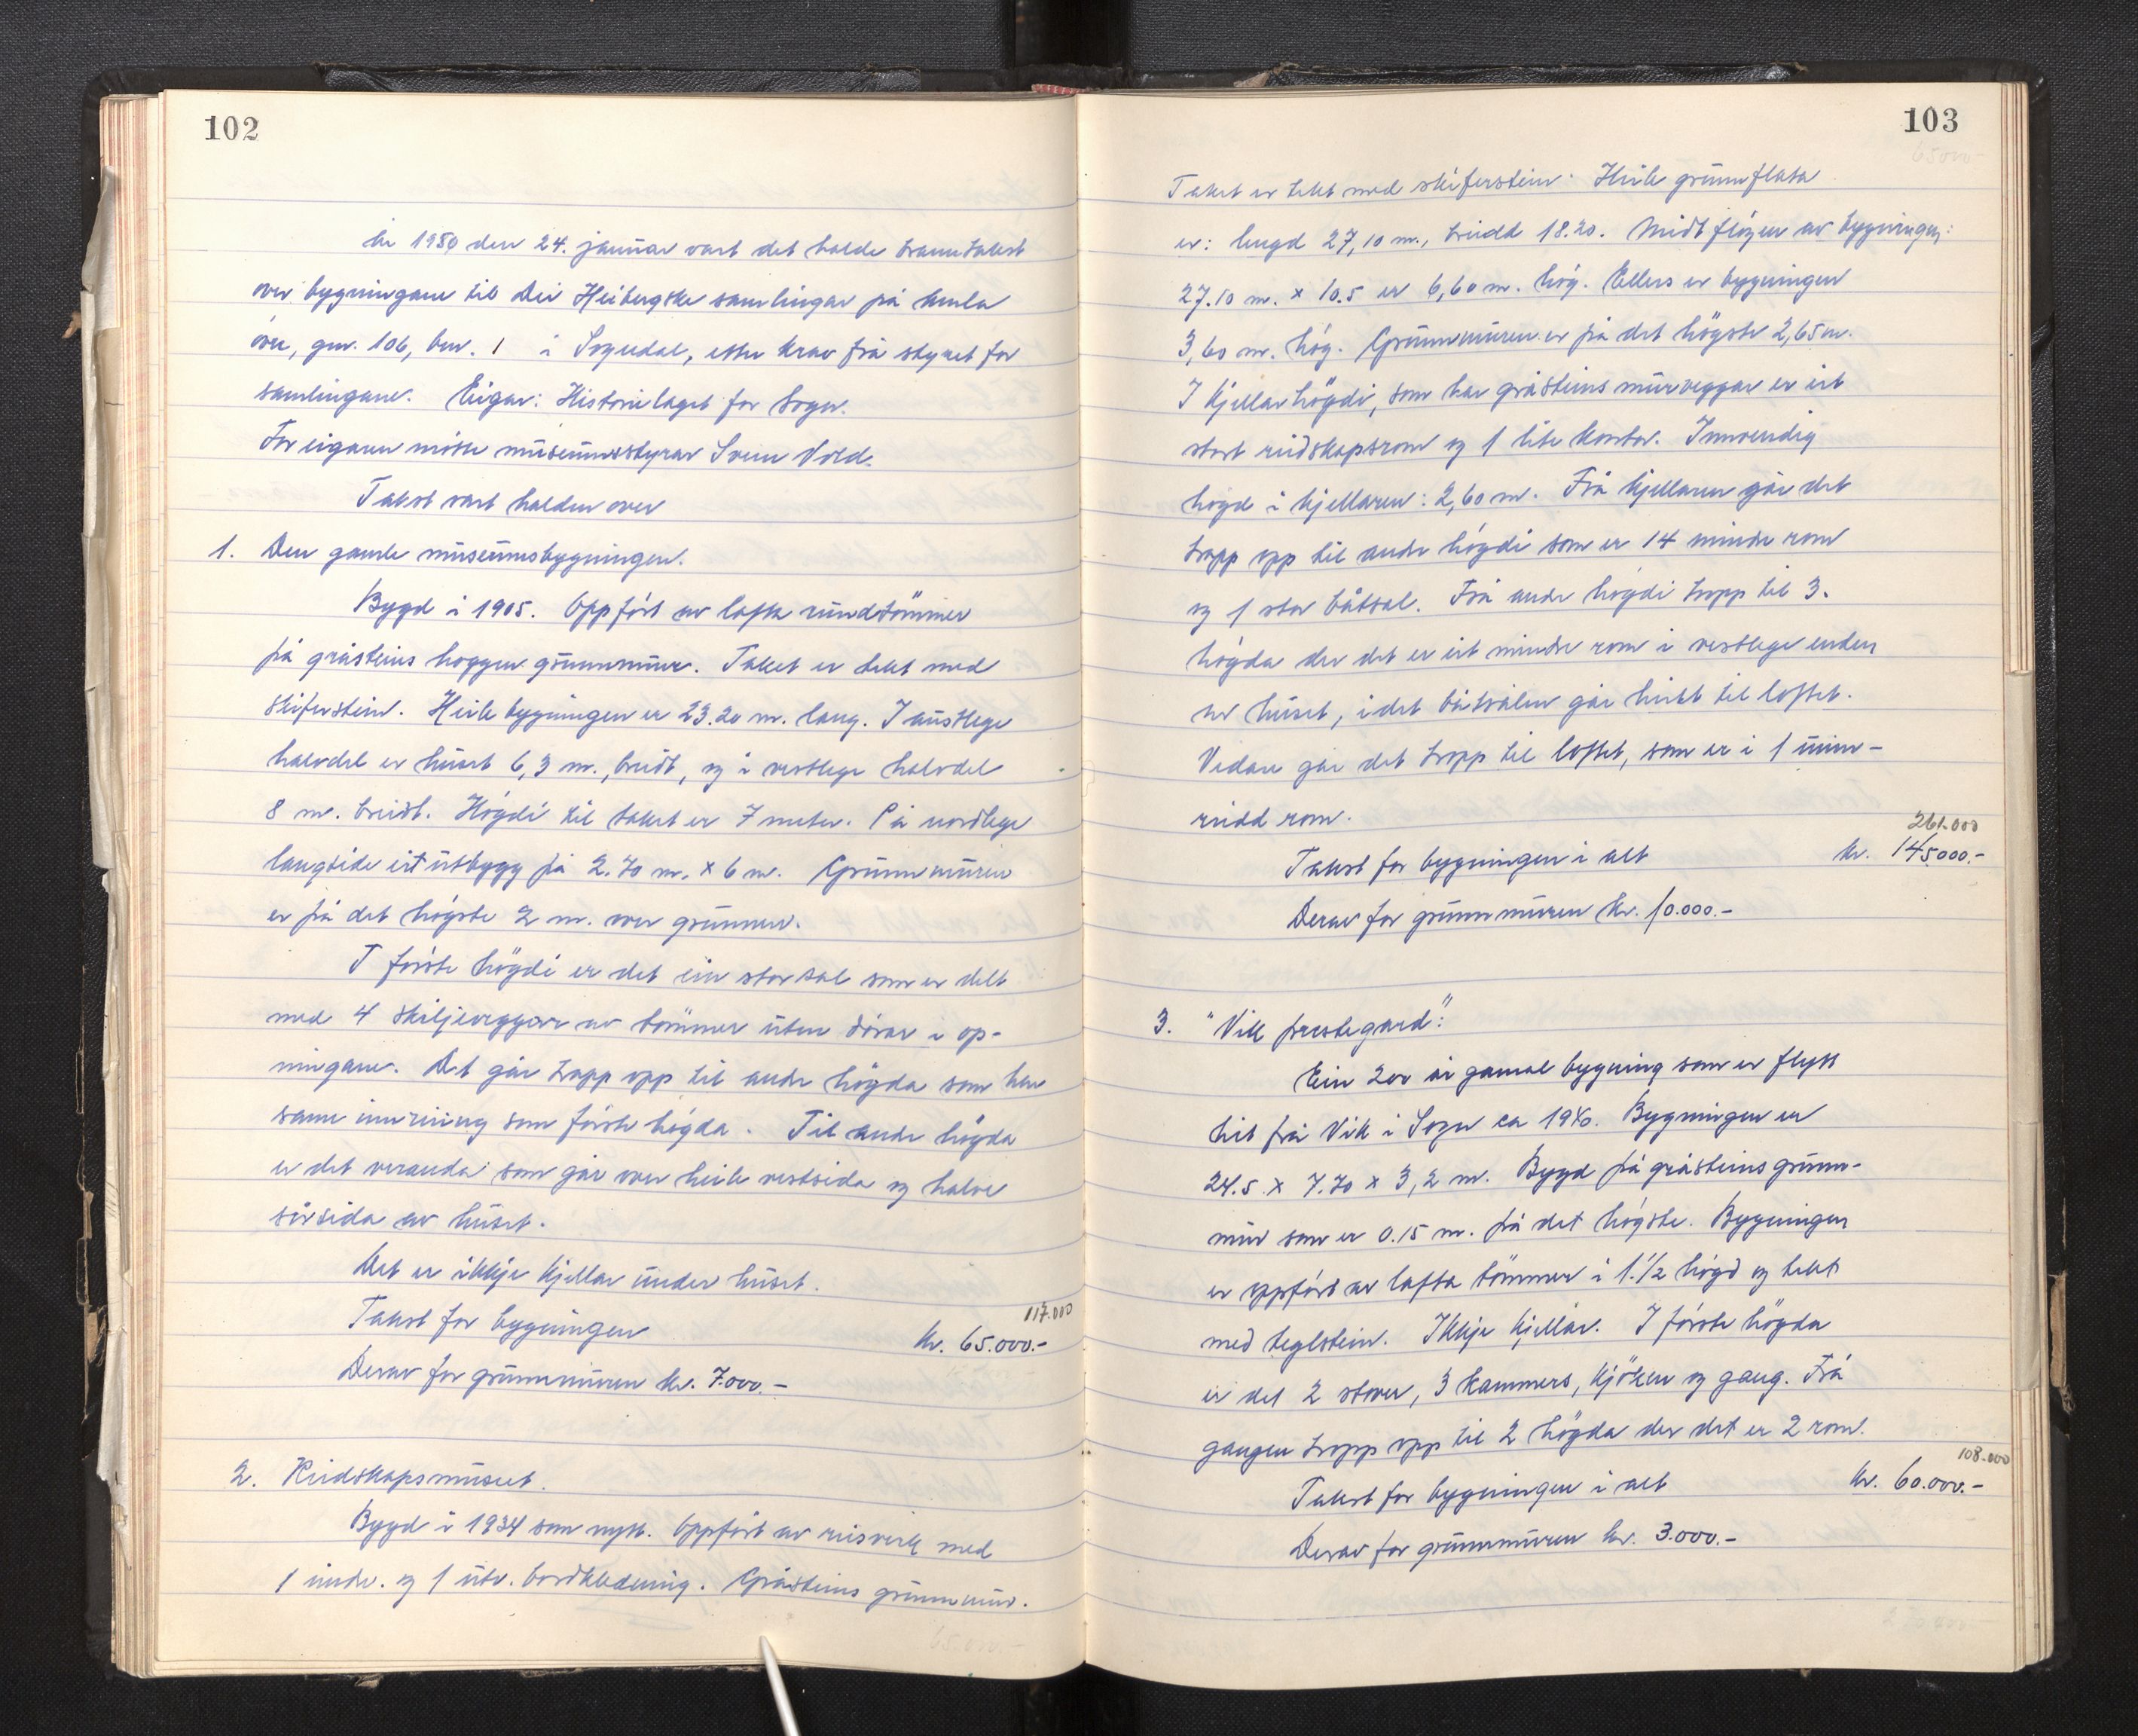 102
År 1950 den 24. januar vart det halde branntakst
over bygningane til Dei Heibergske samlingar på Amla
øvre, gnr. 106, bnr. 1 i Sogndal, etter krav frå styret for
samlingane. Eigar: Historielaget for Sogn.
For eigaren møtte museumsstyrar Svein Vold.
Takst vart halden over
1. Den gamle museumsbygningen.
Bygd i 1905. Oppført av lafta rundtömmer
på gråsteins hoggen grunnmur. Taket er tekt med
skiferstein. Heile bygningen er 23.20 m. lang. I austlege
halvdel er huset 6,3 m., breidt, og i vestlege halvdel
8 m. breidt. Högdi til taket er 7 meter. På nordlege
langside eit utbygg på 2.70 m. x 6 m. Grunnmuren
er på det högste 2 m. over grunnen.
I förste högdi er det ein stor sal som er delt
med 4 skiljeveggar av tömmer uten dörar i op-
ningane. Det går trapp opp til andre högda som har
same innreiing som förste högda. Til andre högda
er det veranda som går over heile vestsida og halve
sörsida av huset.
Det er ikkje kjellar under huset.
117.000
Takst for bygningen Kr. 65.000.-
Derav for grunnmuren kr. 7.000.-
2. Reidskapsmuseet.
Bygd i 1934 som nytt. Oppfört av reisverk med
1 innv. og 1 utv. bordkledning. Gråsteins grunnmur.
103
65000-
Taket er tekt med skiferstein. Heile grunnflata
er: lengd 27,10 m., breidd 18.20. Midtfløyen av bygningen:
27.10 m. x 10.5 er 6,60 m. høg. Ellers er bygningen
3,60 m. høg. Grunnmuren er på det högste 2,65 m.
I kjellarhögdi, som har gråsteins murveggar er eit
stort reidskapsrom og 1 lite kontor. Innvendig
høgd i kjellaren: 2,60 m. Frå kjellaren går det
trapp opp til andre högdi som er 14 mindre rom
og 1 stor båtsal. Frå andre högdi trapp til 3.
högda der det er eit mindre rom i vestlege enden
av huset, idet båtsalen går heilt til loftet.
Vidare går det trapp til loftet, som er i 1 uinn-
reidd rom.
261.000
Takst for bygningen i alt kr. 145000.-
Derav for grunnmuren kr. 10.000.-
3. "Vik prestegard":
Ein 200 år gamal bygning som er flytt
hit frå Vik i Sogn ca 1940. Bygningen er
24.5 x 7.70 x 3,2 m. Bygd på gråsteins grunn-
mur som er 0.15 m. på det høgste. Bygningen
er oppfört av lafta tömmer i 1.1/2 högd og tekt
med teglstein. Ikkje kjellar. I förste högda
er det 2 stover, 3 kammers, kjöken og gang. Frå
gangen trapp opp til 2 högda der det er 2 rom.
108.000
Takst for bygningen i alt kr. 60.000.-
Derav for grunnmuren kr. 3.000.-